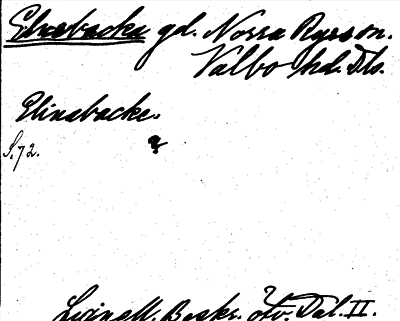 Elvebacka gd. Norra Ryrson.
Valbo hd. Dls.
Elinsbacke.
S. 72.
Lignell. Beskr. öfv. Dal. II.